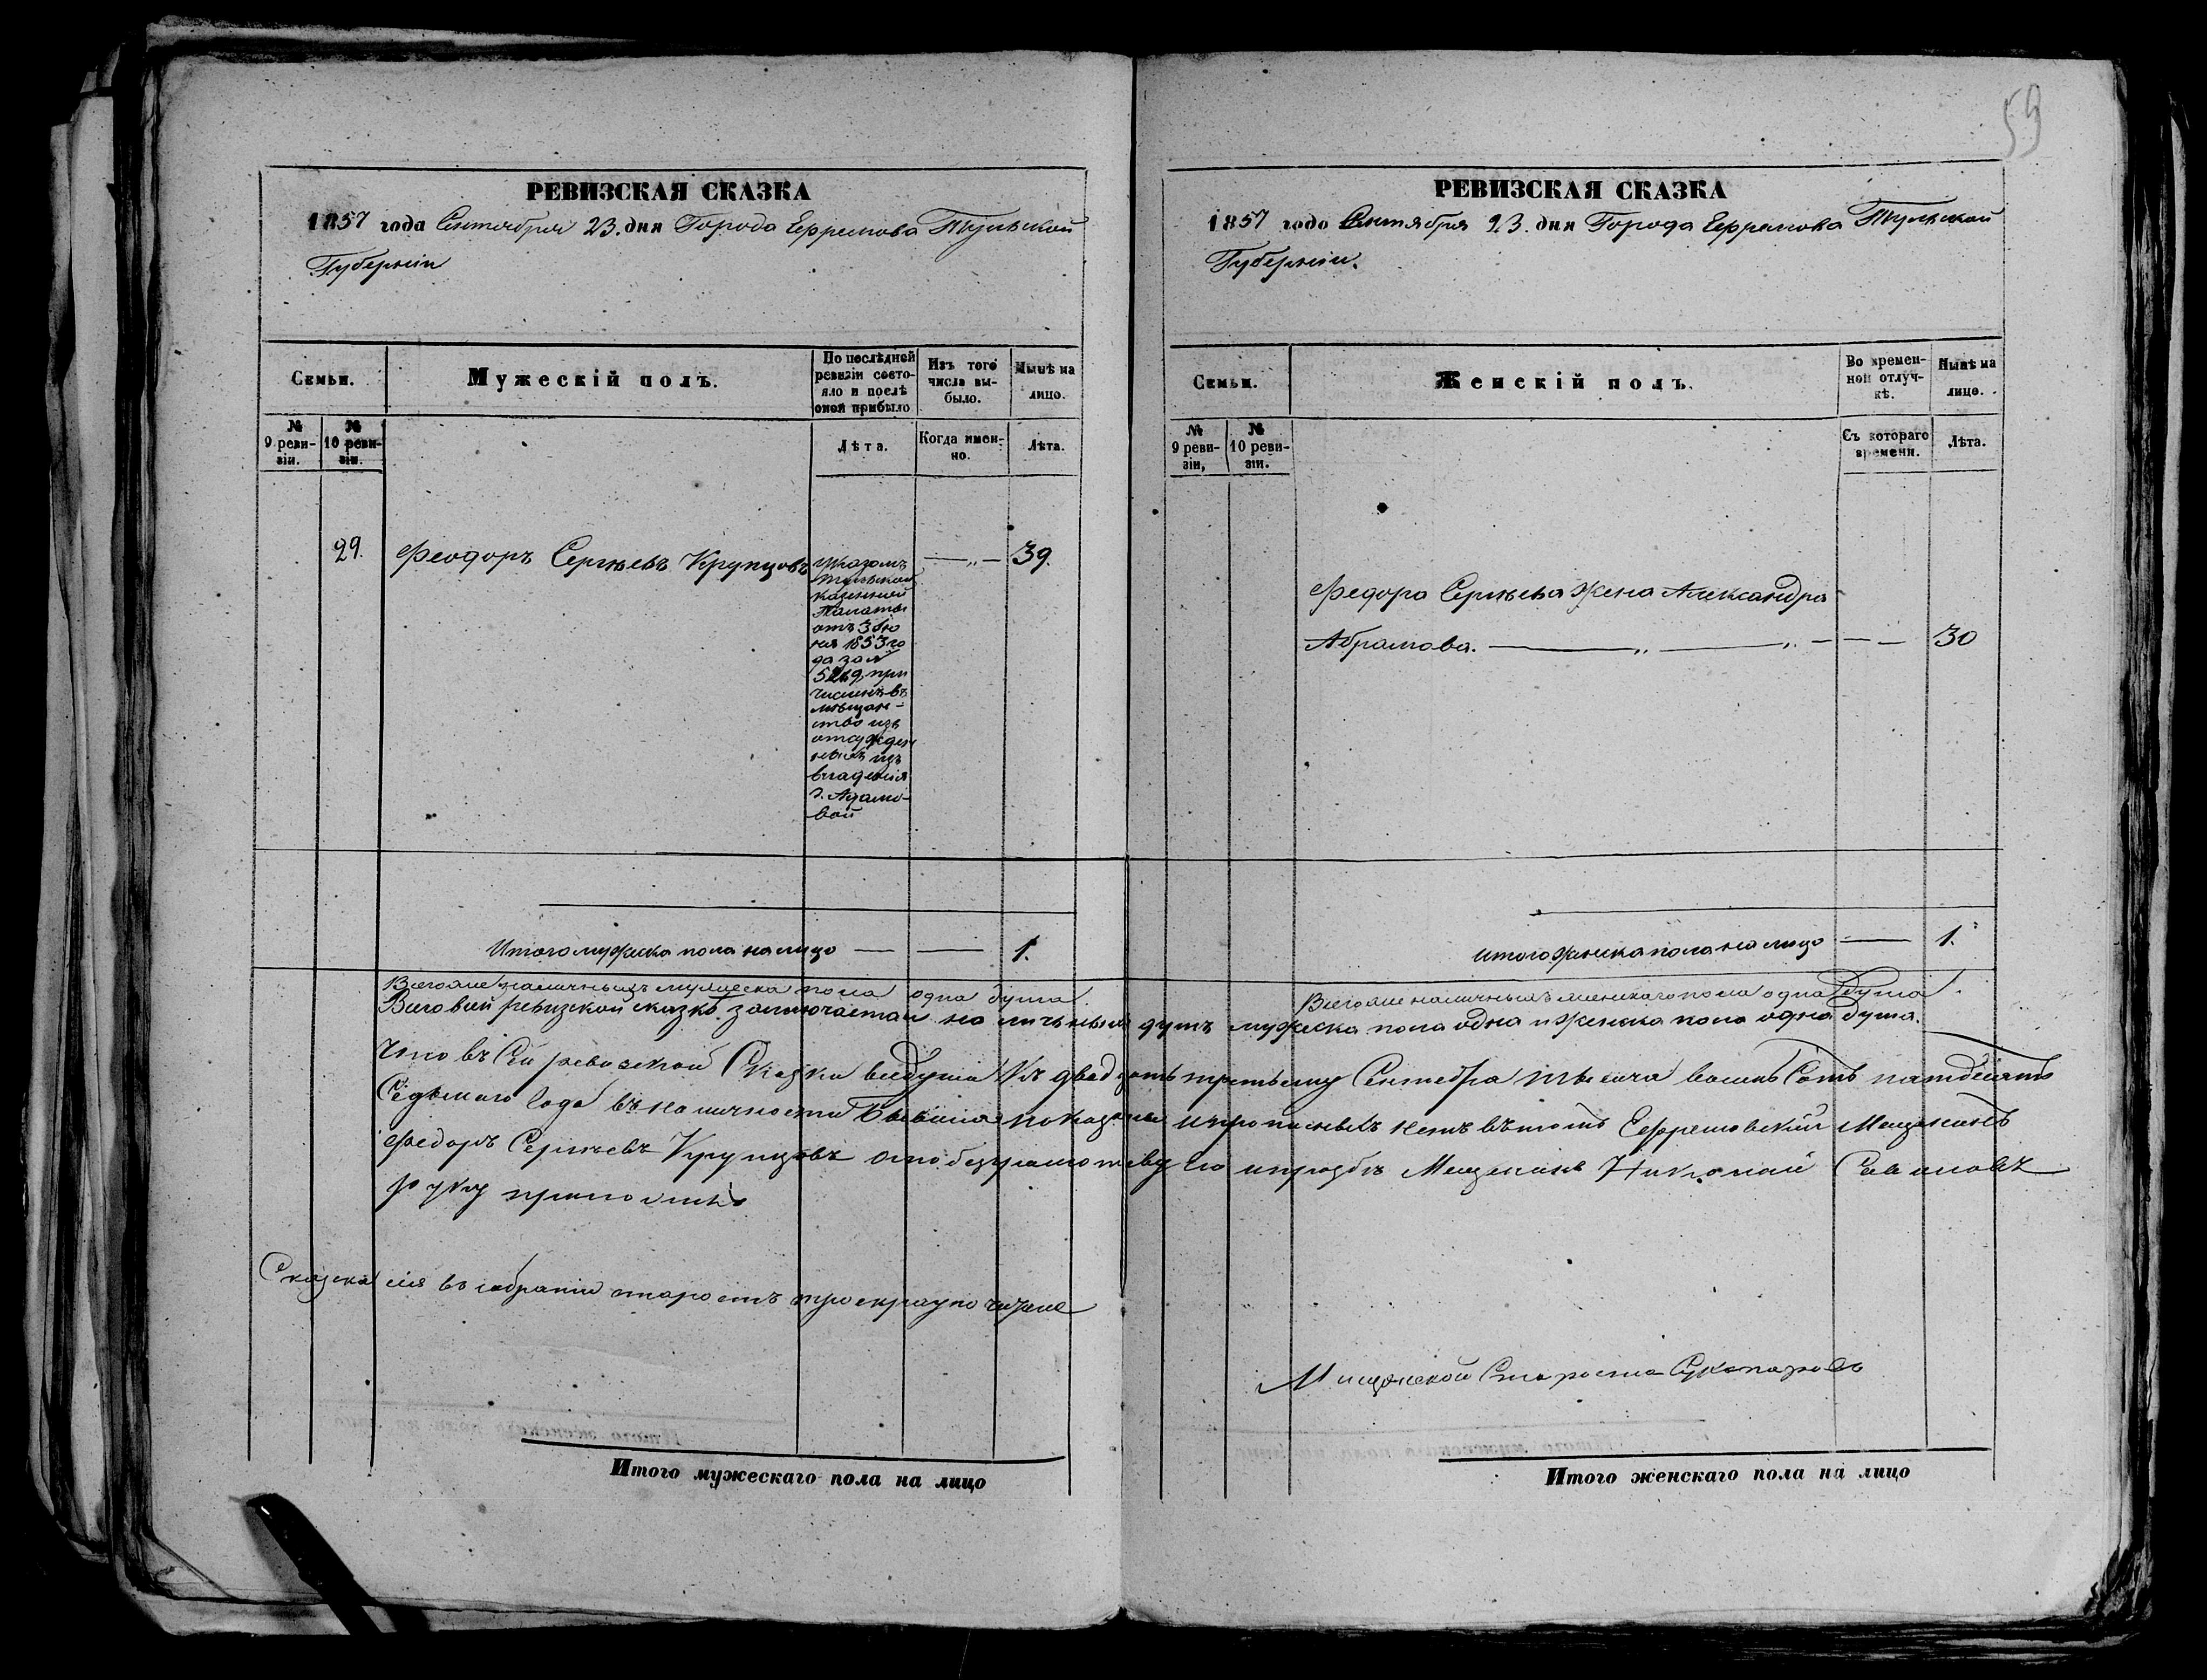 59
РЕВИЗСКАЯ СКАЗКА
1857 года Сентября 23. дня Города Ефремова Тульской
Губерніи
Семьи.
Мужескій полъ.
По послѣдней ревизіи состояло и послѣ оной прибыло
Изъ того числа выбыло.
Нынѣ на лицо.
№ 9 реви-зіи.
№ 10 реви-зіи.
Лѣта.
Когда имен-но.
Лѣта.
29. Феодоръ Сергѣевъ Крупцовъ — „ — 39.
Указомъ
Тульской
казенной
Палаты
отъ 3 Ію
ня 1853 го
да за №
5219, при
численъ въ
мѣщан-
ство изъ
отсужден
ныхъ изъ
владенія
г. Адамо-
вой
Итого мужеска пола на лицо — — 1.
РЕВИЗСКАЯ СКАЗКА
1857 годо Сентября 23. дня Города Ефремова Тульской
Губерніи.
Семьи.
Женскій полъ.
Во времен-ной отлуч-кѣ.
Нынѣ на лицо.
№ 9 реви-зіи,
№ 10 реви-зіи.
Съ котораго времени.
Лѣта.
Федора Сергѣева жена Александра
Абрамова. — „ — „ — — — 30
итого женска пола на лицо — 1.
Всего наличныхъ мужеска пола одна душа.
Всего наличныхъ женскаго пола одна душа.
Всего въ сей ревизской сказкѣ заключается наличныхъ душъ мужеска пола одна и женска пола одна душа.
Что въ Сей ревизской Сказки все душа Къ двадцать третьему Сентебра тысеча восемь Сотъ патдесатъ
Седьмаго Года въ наличности Бывшия показаны и прописныхъ нетъ въ томъ Ефремовский Мещенинъ
Федоръ Сергѣевъ Крупцовъ а по безграмотству его и прозбѣ Мещенинъ Николай
руку приложилъ
Сказка сія въ собраніи старостъ
Мищанской Староста
Итого мужескаго пола на лицо
Итого женскаго пола на лицо